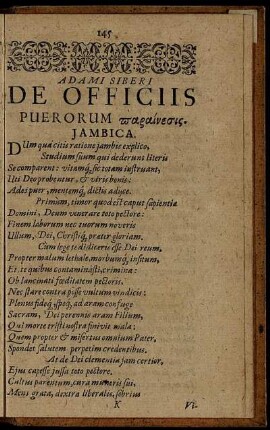 145
ADAMI SIBERI
DE OFFICIIS
PUERORUM παραίνεσις
JAMBICA.
DUm quâ citis ratione jambis explico,
Studium suum qui dederunt literis
Se comparent: vitamq́; sic totam instruant,
Uti Deo probentur, & viris bonis:
Ades puer, mentemq́; dictis adjice.
Primùm, timor quod est caput sapientiæ
Domini, Deum venerare toto pectore:
Finem laborum nec tuorum noveris
Ullum, Dei, Christiq́; præter gloriam.
Cum lege te didiceris esse Dei reum,
Propter malum lethale, morbumq́; insitum,
Et te quibus contaminasti, crimina:
Ob lancinati fœditatem pectoris,
Nec stare contra posse vultum vindicis:
Plenus fideq́; speiq́; ad aram confuge
Sacram, Dei perennis aram Filium,
Qui morte tristi nostra finivit mala:
Quem propter & misertus omnium Pater,
Spondet salutem perpetim credentibus.
At de Dei clementia jam certior,
Ejus capesse jussa toto pectore.
Cultus parentum, cura muneris sui,
Mens grata, dextra liberalis, sobrius
K
VI-